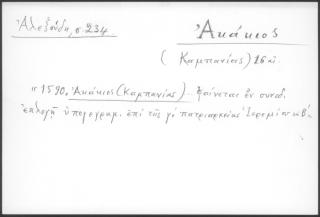 Ἀλεξούδη, σ. 234
Ἀκάκιος
(Καμπανίας) 16 αἰ.
"1590, Ἀκάκιος (Καμπανίας)... φαίνεται ἐν συνοδ.
ἐκλογῇ ὑπογεγραμ. ἐπὶ τῆς γ' πατριαρχείας Ἱερεμίου τοῦ Β'.